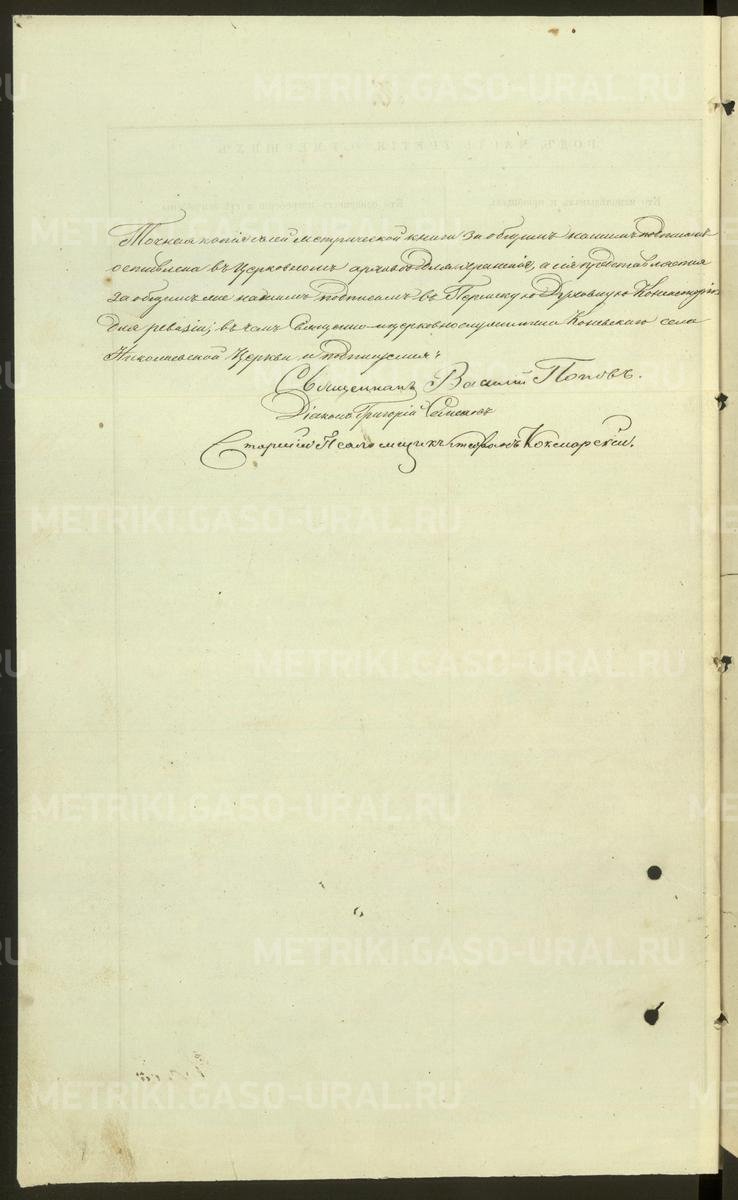 Точная копія съ сей метрической книги за общимъ нашимъ подписомъ
оставлена въ церковномъ архивѣ для храненія, а сія представляется
за общимъ же нашимъ подписомъ въ Пермскую Духовную Консисторію
для ревизіи; въ чемъ Священно-церковнослужители Коневскаго села
Николаевской Церкви и подписуемся:
Священникъ Василій Поповъ.
Діаконъ Григорій
Старшій Псаломщикъ Кокшарскій.
METRIKI.GASO-URAL.RU
METRIKI.GASO-URAL.RU
METRIKI.GASO-URAL.RU
METRIKI.GASO-URAL.RU
METRIKI.GASO-URAL.RU
METRIKI.GASO-URAL.RU
METRIKI.GASO-URAL.RU
METRIKI.GASO-URAL.RU